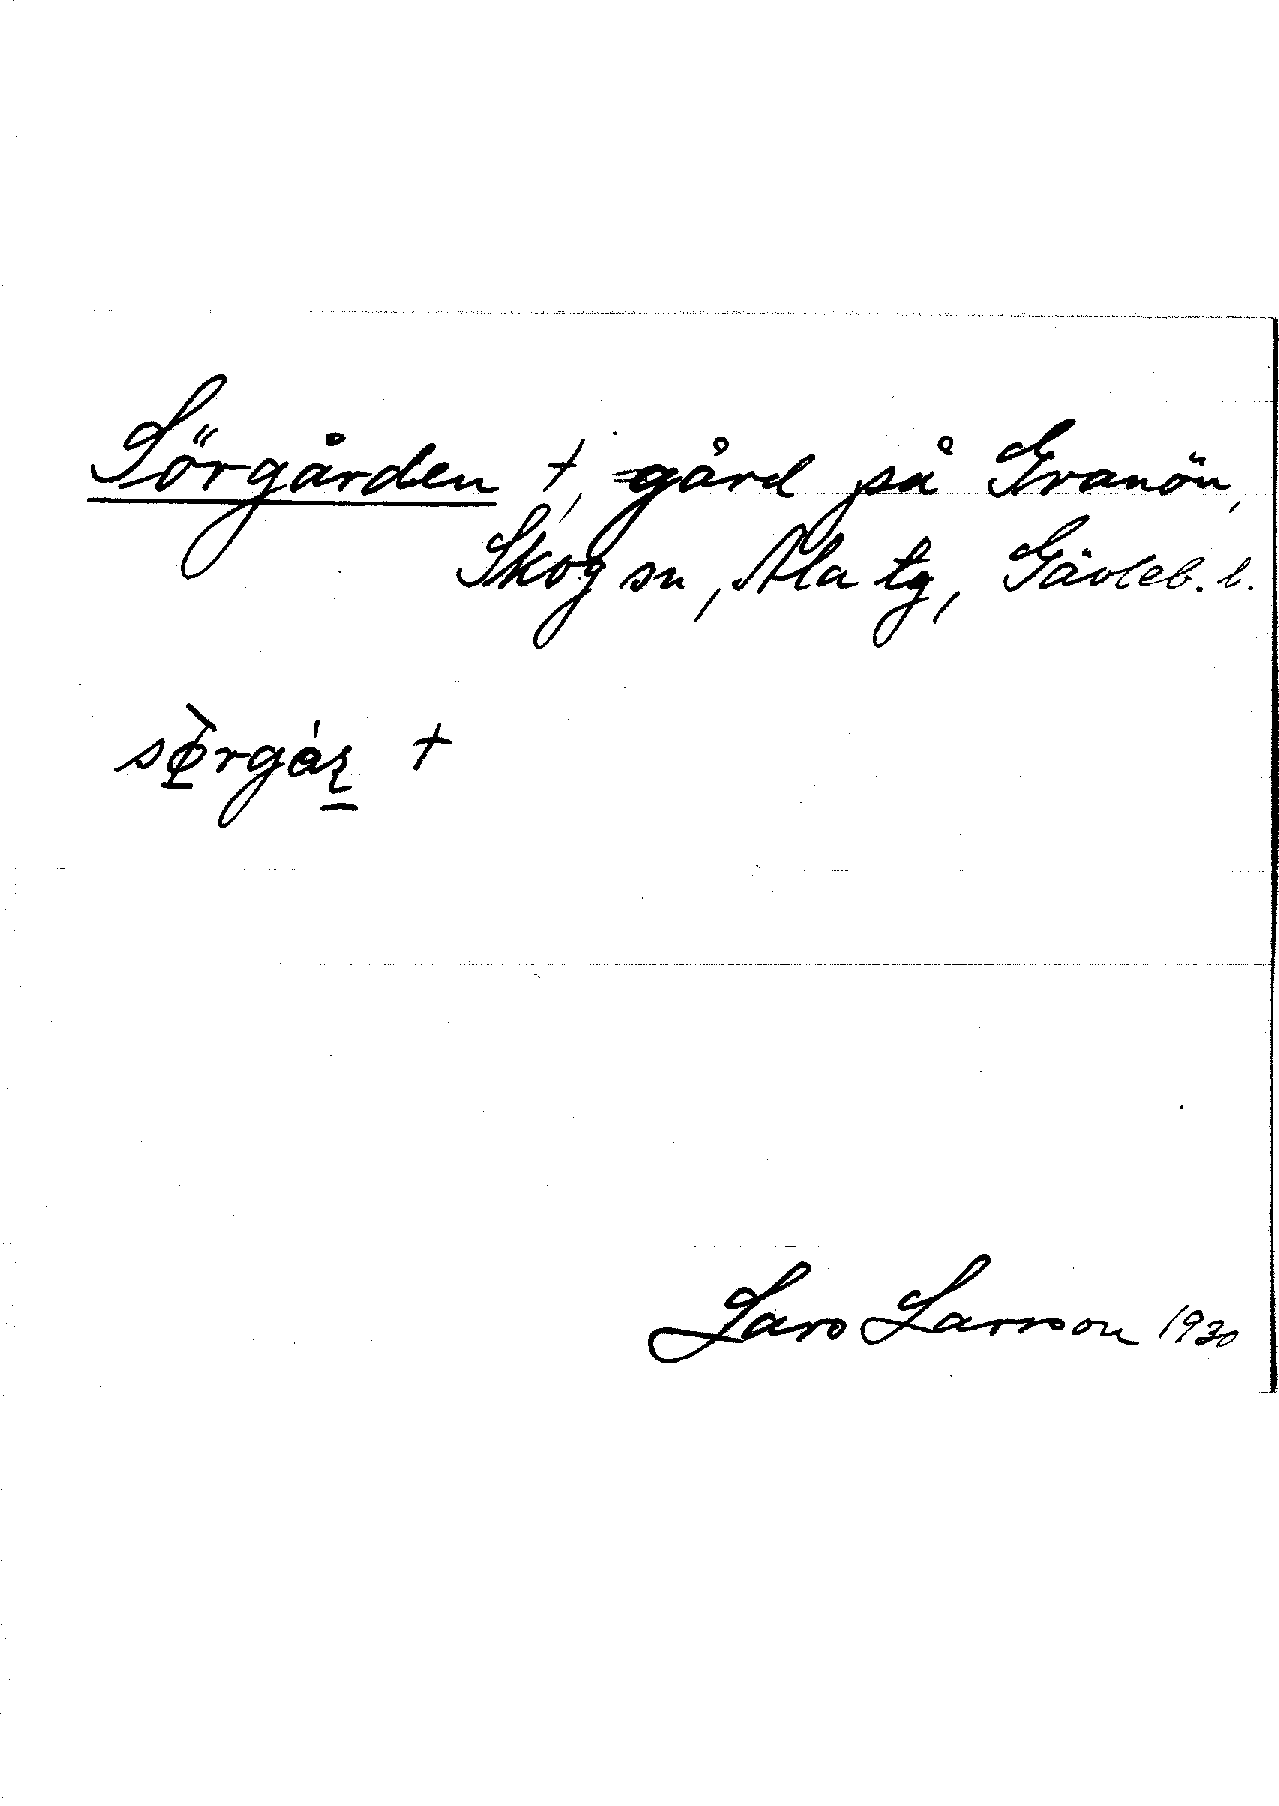 Sörgården +, gård på Granön,
Skog sn, Ala tg, Gävleb. l.
+
Lars Larsson 1930